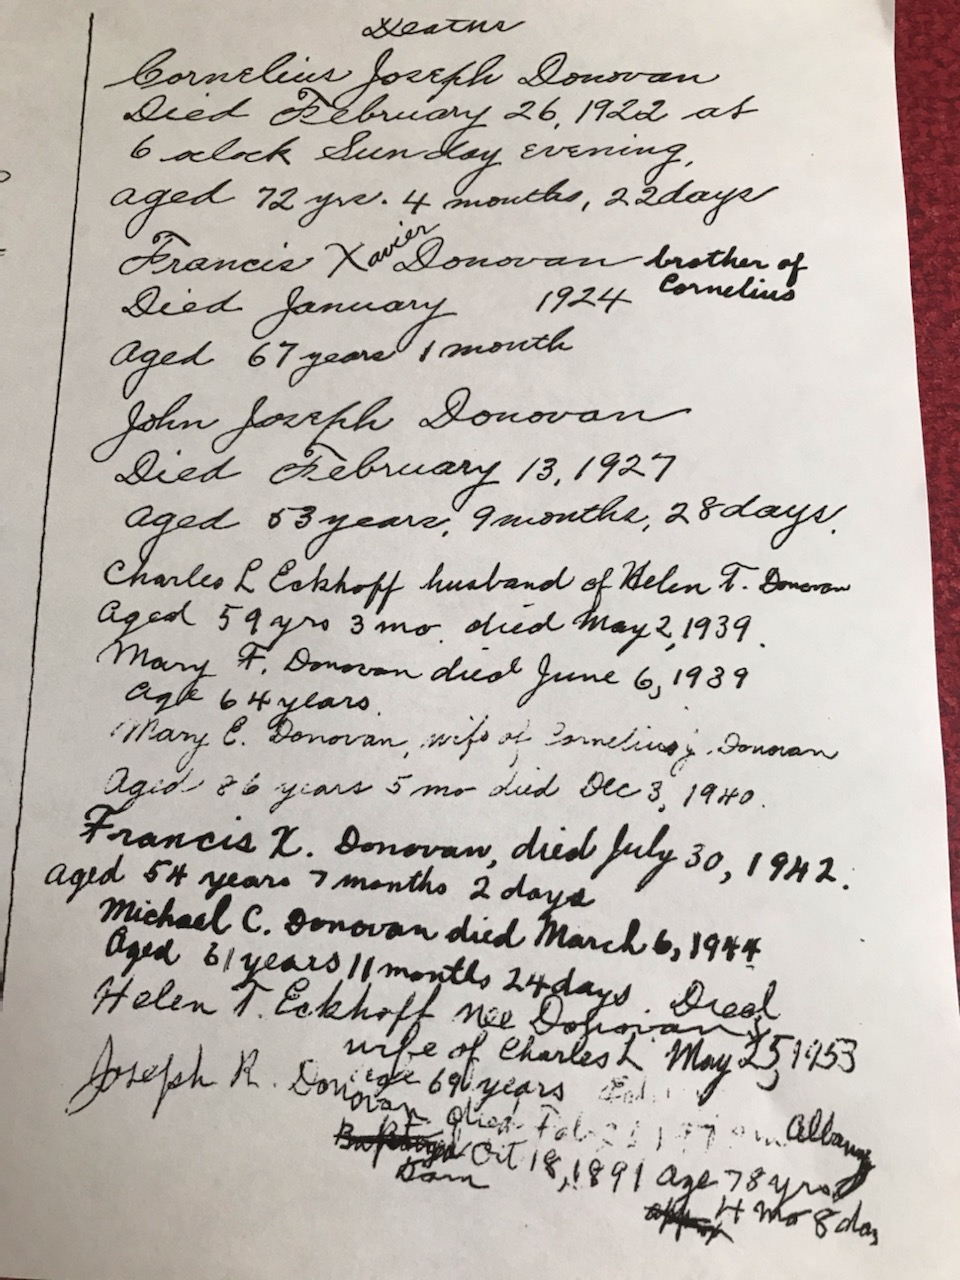 Deaths
Cornelius Joseph Donovan
Died February 26, 1922 at
6 oclock Sunday evening,
aged 72 yrs. 4 months, 22 days
Francis Xavier Donovan brother of Cornelius
Died January 1924
Aged 67 years 1 month
John Joseph Donovan
Died February 13, 1927
aged 53 years, 9 months, 28 days.
Charles L Eckhoff husband of Helen T. Donovan
Aged 59 yrs 3 mo. died May 2, 1939.
Mary F. Donovan died June 6, 1939
age 64 years.
Mary E. Donovan, wife of Cornelius J. Donovan
Aged 86 years 5 mo died Dec 3, 1940.
Francis X. Donovan, died July 30, 1942.
aged 54 years 7 months 2 days
Michael C. Donovan died March 6, 1944
Aged 61 years 11 months 24 days.
Helen T. Eckhoff nee Donovan Died
wife of Charles L May 25, 1953
age 69 years
Joseph R. Donovan died Albany
Born Oct 18, 1891 age 78 yrs
4 mo 8 da